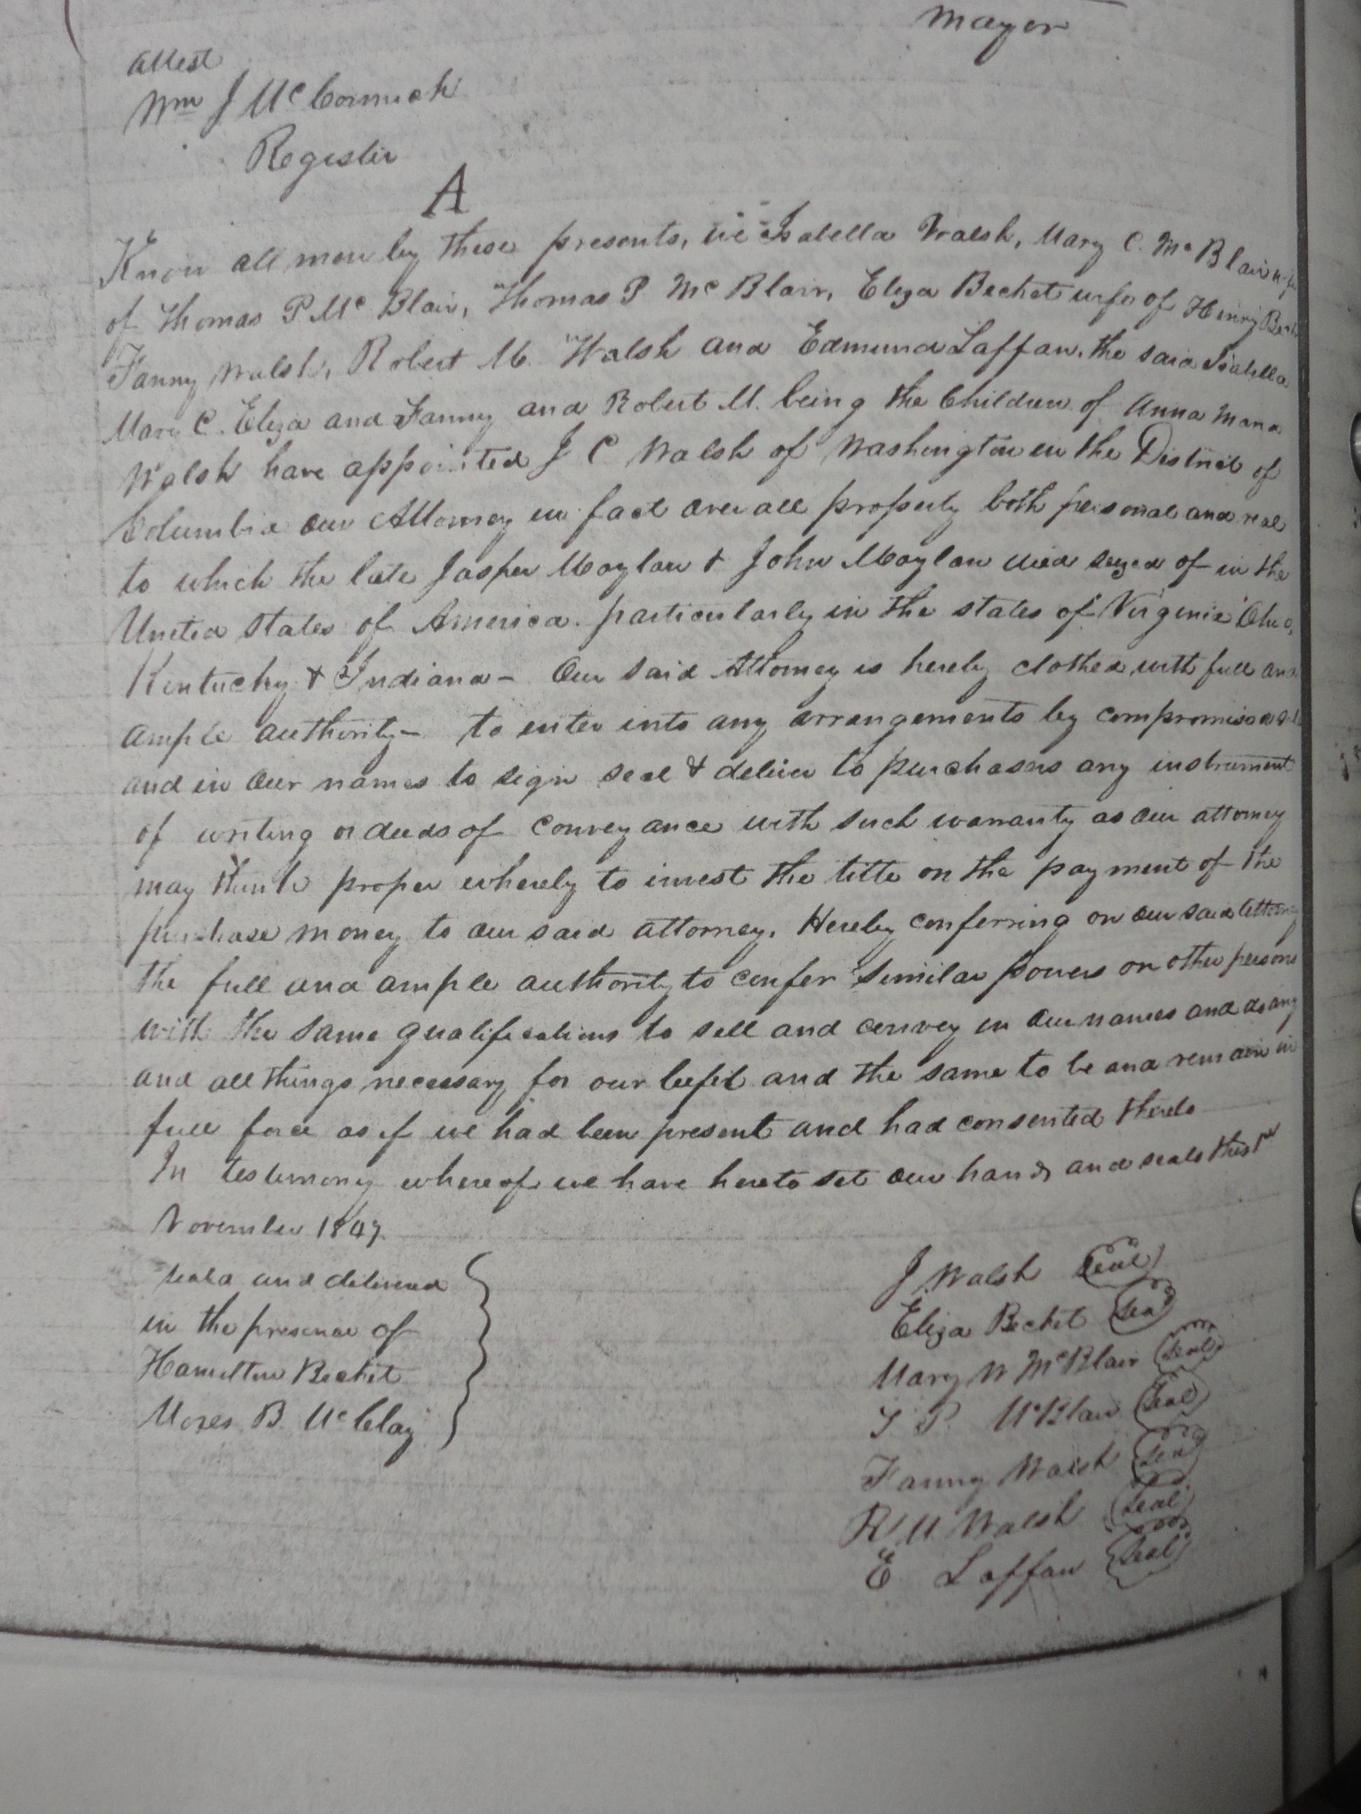 Mayor
attest
Wm J McCormick
Register
A
Know all men by these presents, we Isabella Walsh, Mary C. Mc Blair wife
of Thomas P Mc Blair, Thomas P. Mc Blair, Eliza Becket wife of Henry
Fanny Walsh, Robert M. Walsh and Edmund Laffan, the said Isabella
Mary C. Eliza and Fanny and Robert M. being the Children of Anna Maria
Walsh have appointed J C Walsh of Washington in the District of
Columbia our Attorney in fact over all property both personal and real
to which the late Jasper Moylan & John Moylan died seized of in the
United States of America. particularly in the states of Virginia Ohio,
Kentucky & Indiana - Our said Attorney is hereby clothed with full and
ample authority - to enter into any arrangements by compromise
and in our names to sign seal & deliver to purchasers any instrument
of writing or deeds of conveyance with such warranty as our attorney
may think proper whereby to invest the title on the payment of the
purchase money to our said attorney. Hereby conferring on our said Attorney
the full and ample authority to confer similar powers on other persons
with the same qualifications to sell and convey in our names and do any
and all things necessary for our and the same to be and remain in
full force as if we had been present and had consented thereto
In testimony whereof we have hereto set our hands and seals this 1st
November 1849
seald and delivered
in the presence of
Hamilton Becket
Moses B. McClay
J Walsh Seal
Eliza Becket Seal
Mary W McBlair Seal
T P McBlair Seal
Fanny Walsh Seal
R M Walsh Seal
E Laffan Seal